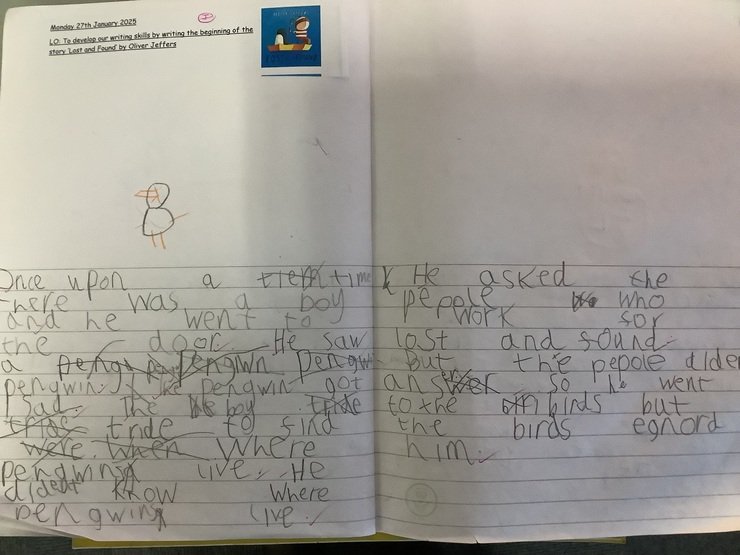 Monday 27th January 2025
LO: To develop our writing skills by writing the beginning of the
story 'Lost and Found' by Oliver Jeffers
Once upon a time
there was a boy
and he went to
the door. He saw
a
pengwin. The pengwin got
sad. The boy
tride to find
where
pengwins live. He
dident know where
pengwins live.
He asked the
pepole who
work for
lost and found.
But the pepole dident
answer so he went
to the birds but
the birds egnord
him.